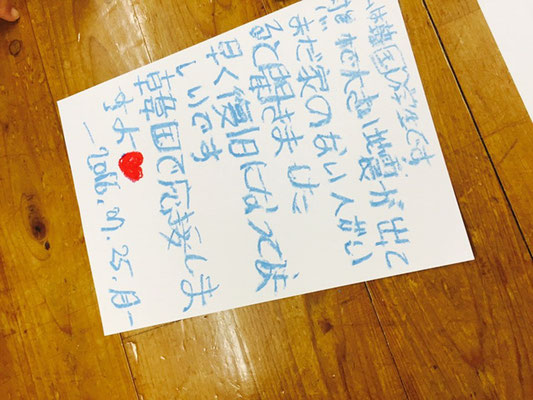 は韓国の学生です
大きい地震が出て
まだ家のない人がい
ると聞きました
早く復旧になってほ
しいです
韓国で応援しま
す
-2016.07.25.月-